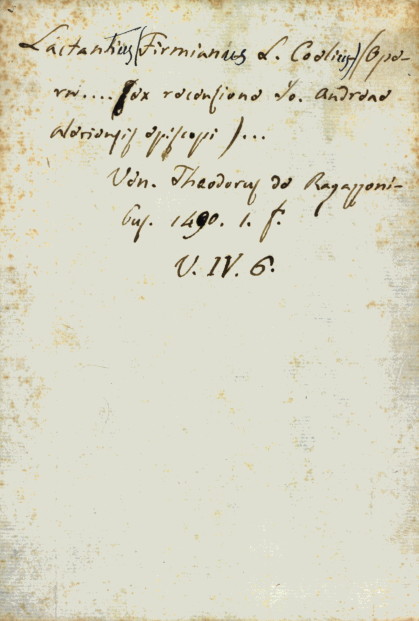 Lactantius (Firmianus L. Coelius) (Ope-
ra.... (ex recensione Jo. Andreae
Aleriensis episcopi)...
Ven. Theodorus de Ragazzoni-
bus. 1490. 1. f.
V. IV. 6.